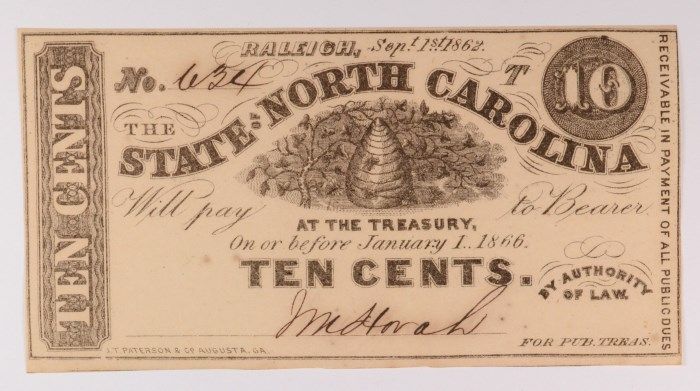 RALEIGH, Sept. 1st 1862.
No. 634 T
10
THE
STATE OF NORTH CAROLINA
Will pay to Bearer
AT THE TREASURY,
On or before January 1.. 1866.
TEN CENTS.
BY AUTHORITY
OF LAW.
FOR PUB. TREAS.
J.T. PATERSON & CO AUGUSTA, GA.
TEN CENTS
RECEIVABLE IN PAYMENT OF ALL PUBLIC DUES